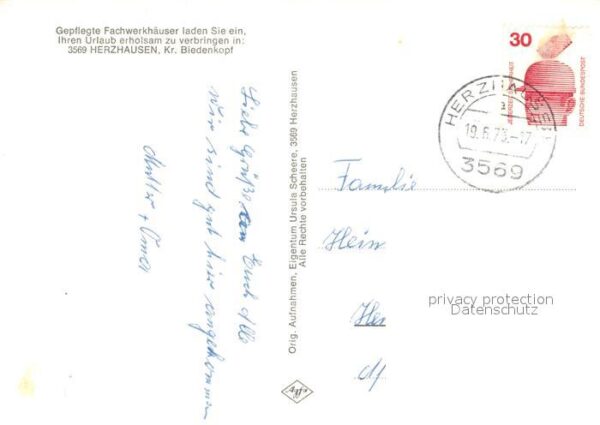 Gepflegte Fachwerkhäuser laden Sie ein,
Ihren Urlaub erholsam zu verbringen in:
3569 HERZHAUSEN, Kr. Biedenkopf
30
JEDERZEIT SICHERHEIT
DEUTSCHE BUNDESPOST
HERZHAUSEN
a
19.6.73.-17
3569
Liebe Grüße an Euch Alle
wir sind gut hier angekommen
Mutter + Oma
Orig. Aufnahmen, Eigentum Ursula Scheere, 3569 Herzhausen
Alle Rechte vorbehalten
Agfa
Familie
Hein
privacy protection
Datenschutz